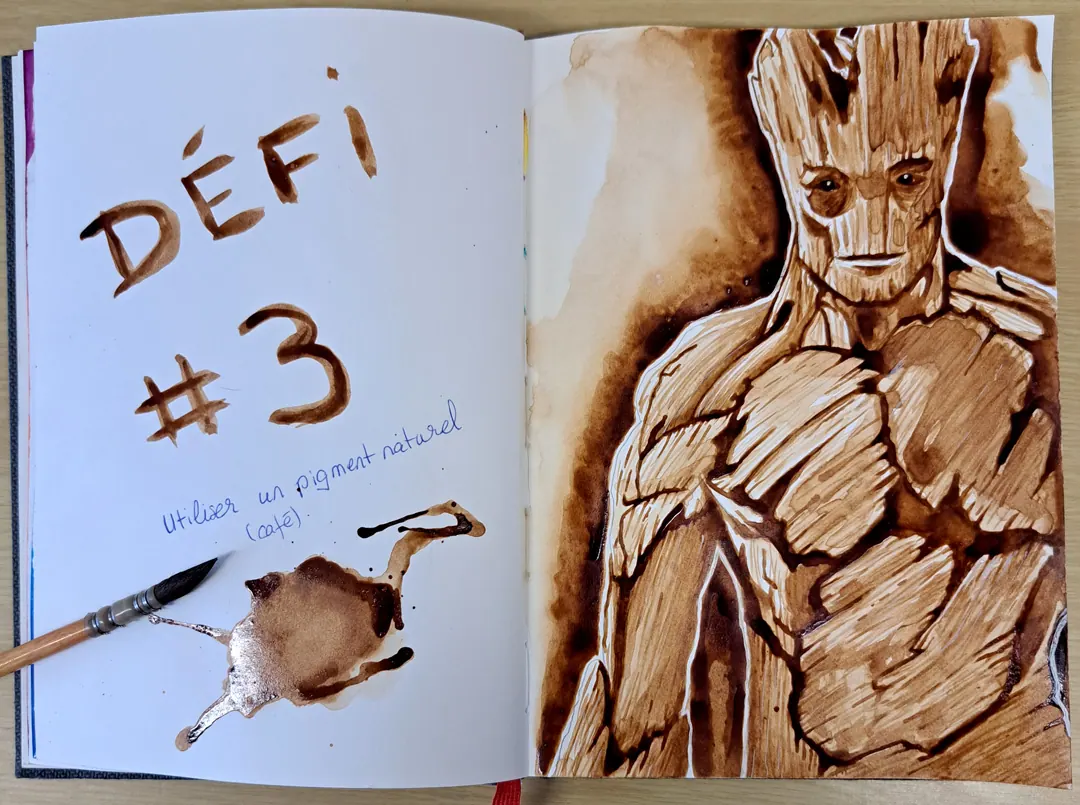 DÉFI
#3
Utiliser un pigment naturel
(café)